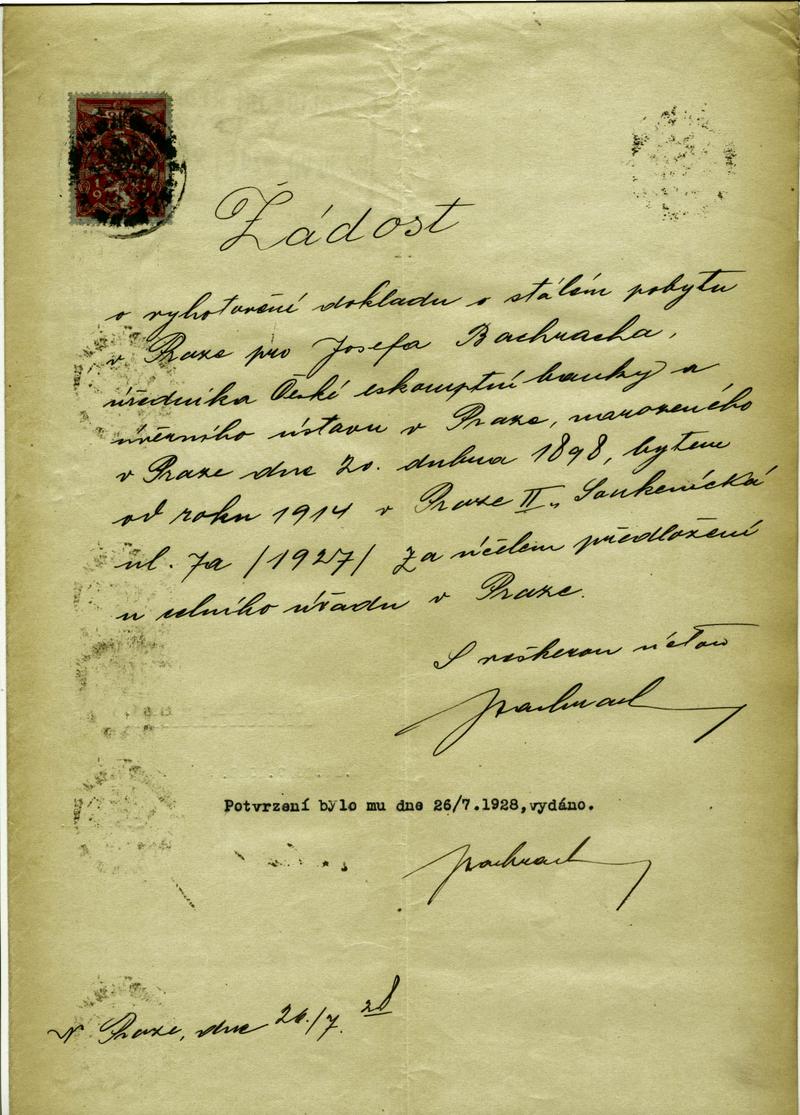 Žádost
o vyhotovení dokladu o stálém pobytu
v Praze pro Josefa Bachracha,
úředníka České eskomptní banky a
úvěrního ústavu v Praze, narozeného
v Praze dne 20. dubna 1898, bytem
od roku 1914 v Praze II., Soukenická
ul. 7a /1927/ za účelem předložení
u celního úřadu v Praze.
S veškerou úctou
Bachrach
Potvrzení bylo mu dne 26/7.1928,vydáno.
Bachrach
V Praze, dne 26./7. 28